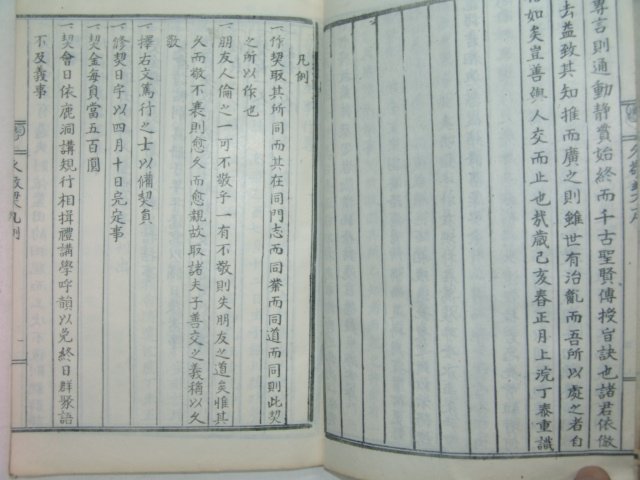 專言則通動靜貫始終而千古聖賢傳授旨訣也諸君依倣
去益致其知推而廣之則雖世有治亂而吾所以處之者自
如矣豈善與人交而止也哉歲己亥春正月上浣丁泰重識
凡例
一作契取其所同而其在同門志而同業而同道而同則此契
之所以作也
一朋友人倫之一可不敬乎一有不敬則失朋友之道矣惟其
久而敬不衰則愈久而愈親故取諸夫子善交之義稱以久
敬
一擇右文篤行之士以備契員
一修契日字以四月十日完定事
一契金每員當五百圜
一契會日依鹿洞講規行相揖禮講學呼韻以免終日群聚語
不及義事
久敬契凡例
一